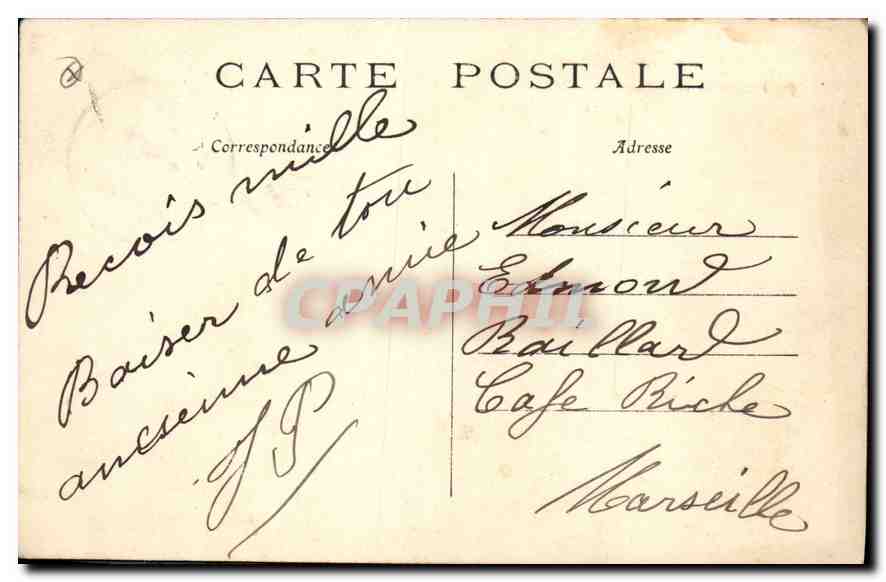 CARTE POSTALE
Correspondance
Recois mille
Baiser de ton
ancienne amie
JP
Adresse
Monsieur
Edmond
Raillard
Cafe Riche
Marseille
CPAPHIL